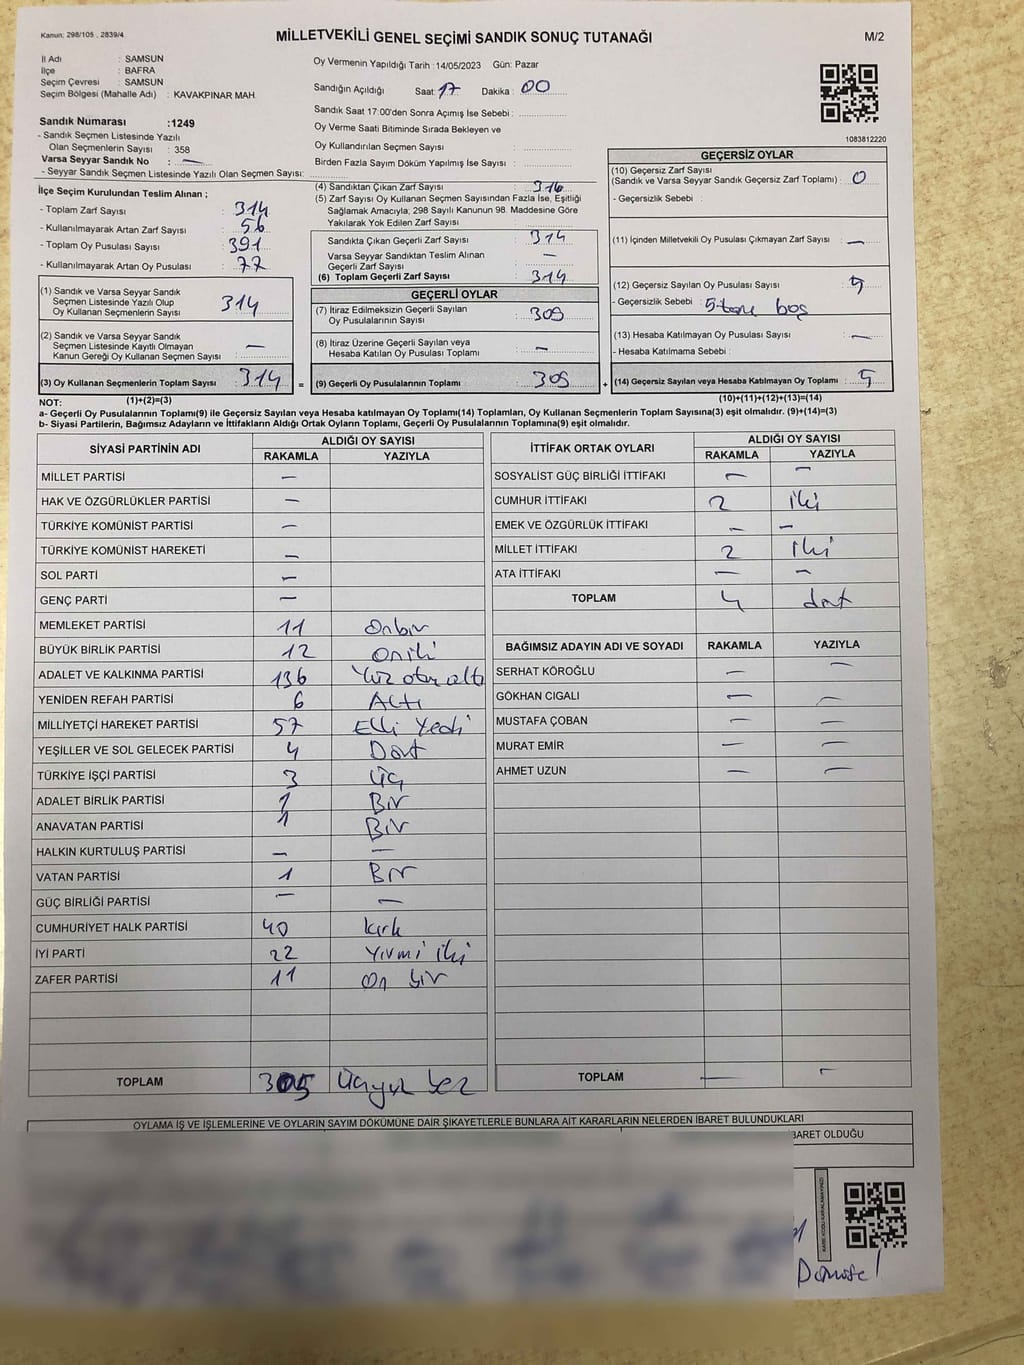 Kanun: 298/105 , 2839/4
MİLLETVEKİLİ GENEL SEÇİMİ SANDIK SONUÇ TUTANAĞI
M/2
İl Adı : SAMSUN
İlçe : BAFRA
Seçim Çevresi : SAMSUN
Seçim Bölgesi (Mahalle Adı) : KAVAKPINAR MAH.
Oy Vermenin Yapıldığı Tarih : 14/05/2023 Gün: Pazar
Sandığın Açıldığı Saat : 17 Dakika : 00
Sandık Saat 17:00'den Sonra Açımış İse Sebebi :
Oy Verme Saati Bitiminde Sırada Bekleyen ve
Oy Kullandırılan Seçmen Sayısı :
Birden Fazla Sayım Döküm Yapılmış İse Sayısı :
1083812220
Sandık Numarası :1249
- Sandık Seçmen Listesinde Yazılı
Olan Seçmenlerin Sayısı : 358
Varsa Seyyar Sandık No : —
- Seyyar Sandık Seçmen Listesinde Yazılı Olan Seçmen Sayısı:
İlçe Seçim Kurulundan Teslim Alınan ;
- Toplam Zarf Sayısı : 314
- Kullanılmayarak Artan Zarf Sayısı : 56
- Toplam Oy Pusulası Sayısı : 391
- Kullanılmayarak Artan Oy Pusulası : 77
(1) Sandık ve Varsa Seyyar Sandık
Seçmen Listesinde Yazılı Olup
Oy Kullanan Seçmenlerin Sayısı 314
(2) Sandık ve Varsa Seyyar Sandık
Seçmen Listesinde Kayıtlı Olmayan
Kanun Gereği Oy Kullanan Seçmen Sayısı : —
(3) Oy Kullanan Seçmenlerin Toplam Sayısı : 314 =
(1)+(2)=(3)
(4) Sandıktan Çıkan Zarf Sayısı : 314
(5) Zarf Sayısı Oy Kullanan Seçmen Sayısından Fazla İse, Eşitliği
Sağlamak Amacıyla, 298 Sayılı Kanunun 98. Maddesine Göre
Yakılarak Yok Edilen Zarf Sayısı :
Sandıkta Çıkan Geçerli Zarf Sayısı : 314
Varsa Seyyar Sandıktan Teslim Alınan
Geçerli Zarf Sayısı : —
(6) Toplam Geçerli Zarf Sayısı : 314
GEÇERLİ OYLAR
(7) İtiraz Edilmeksizin Geçerli Sayılan
Oy Pusulalarının Sayısı : 309
(8) İtiraz Üzerine Geçerli Sayılan veya
Hesaba Katılan Oy Pusulası Toplamı : —
(9) Geçerli Oy Pusulalarının Toplamı : 309 +
GEÇERSİZ OYLAR
(10) Geçersiz Zarf Sayısı
(Sandık ve Varsa Seyyar Sandık Geçersiz Zarf Toplamı) : 0
- Geçersizlik Sebebi :
(11) İçinden Milletvekili Oy Pusulası Çıkmayan Zarf Sayısı : —
(12) Geçersiz Sayılan Oy Pusulası Sayısı : 5
- Geçersizlik Sebebi : 5 tane boş
(13) Hesaba Katılmayan Oy Pusulası Sayısı : —
- Hesaba Katılmama Sebebi :
(14) Geçersiz Sayılan veya Hesaba Katılmayan Oy Toplamı : 5
(10)+(11)+(12)+(13)=(14)
NOT:
a- Geçerli Oy Pusulalarının Toplamı(9) ile Geçersiz Sayılan veya Hesaba katılmayan Oy Toplamı(14) Toplamları, Oy Kullanan Seçmenlerin Toplam Sayısına(3) eşit olmalıdır. (9)+(14)=(3)
b- Siyasi Partilerin, Bağımsız Adayların ve İttifakların Aldığı Ortak Oyların Toplamı, Geçerli Oy Pusulalarının Toplamına(9) eşit olmalıdır.
SİYASİ PARTİNİN ADI ALDIĞI OY SAYISI
RAKAMLA YAZIYLA
MİLLET PARTİSİ —
HAK VE ÖZGÜRLÜKLER PARTİSİ —
TÜRKİYE KOMÜNİST PARTİSİ —
TÜRKİYE KOMÜNİST HAREKETİ —
SOL PARTİ —
GENÇ PARTİ —
MEMLEKET PARTİSİ 11 Onbir
BÜYÜK BİRLİK PARTİSİ 12 oniki
ADALET VE KALKINMA PARTİSİ 136 Yüz otuz altı
YENİDEN REFAH PARTİSİ 6 Altı
MİLLİYETÇİ HAREKET PARTİSİ 57 Elli Yedi
YEŞİLLER VE SOL GELECEK PARTİSİ 4 Dört
TÜRKİYE İŞÇİ PARTİSİ 3 Üç
ADALET BİRLİK PARTİSİ 1 Bir
ANAVATAN PARTİSİ 1 Bir
HALKIN KURTULUŞ PARTİSİ — —
VATAN PARTİSİ 1 Bir
GÜÇ BİRLİĞİ PARTİSİ — —
CUMHURİYET HALK PARTİSİ 40 kırk
İYİ PARTİ 22 Yirmi iki
ZAFER PARTİSİ 11 On bir
TOPLAM 305 Üçyüz beş
İTTİFAK ORTAK OYLARI ALDIĞI OY SAYISI
RAKAMLA YAZIYLA
SOSYALİST GÜÇ BİRLİĞİ İTTİFAKI — —
CUMHUR İTTİFAKI 2 iki
EMEK VE ÖZGÜRLÜK İTTİFAKI — —
MİLLET İTTİFAKI 2 iki
ATA İTTİFAKI — —
TOPLAM 4 dört
BAĞIMSIZ ADAYIN ADI VE SOYADI RAKAMLA YAZIYLA
SERHAT KÖROĞLU — —
GÖKHAN CIGALI — —
MUSTAFA ÇOBAN — —
MURAT EMİR — —
AHMET UZUN — —
TOPLAM — —
OYLAMA İŞ VE İŞLEMLERİNE VE OYLARIN SAYIM DÖKÜMÜNE DAİR ŞİKAYETLERLE BUNLARA AİT KARARLARIN NELERDEN İBARET BULUNDUKLARI
İBARET OLDUĞU